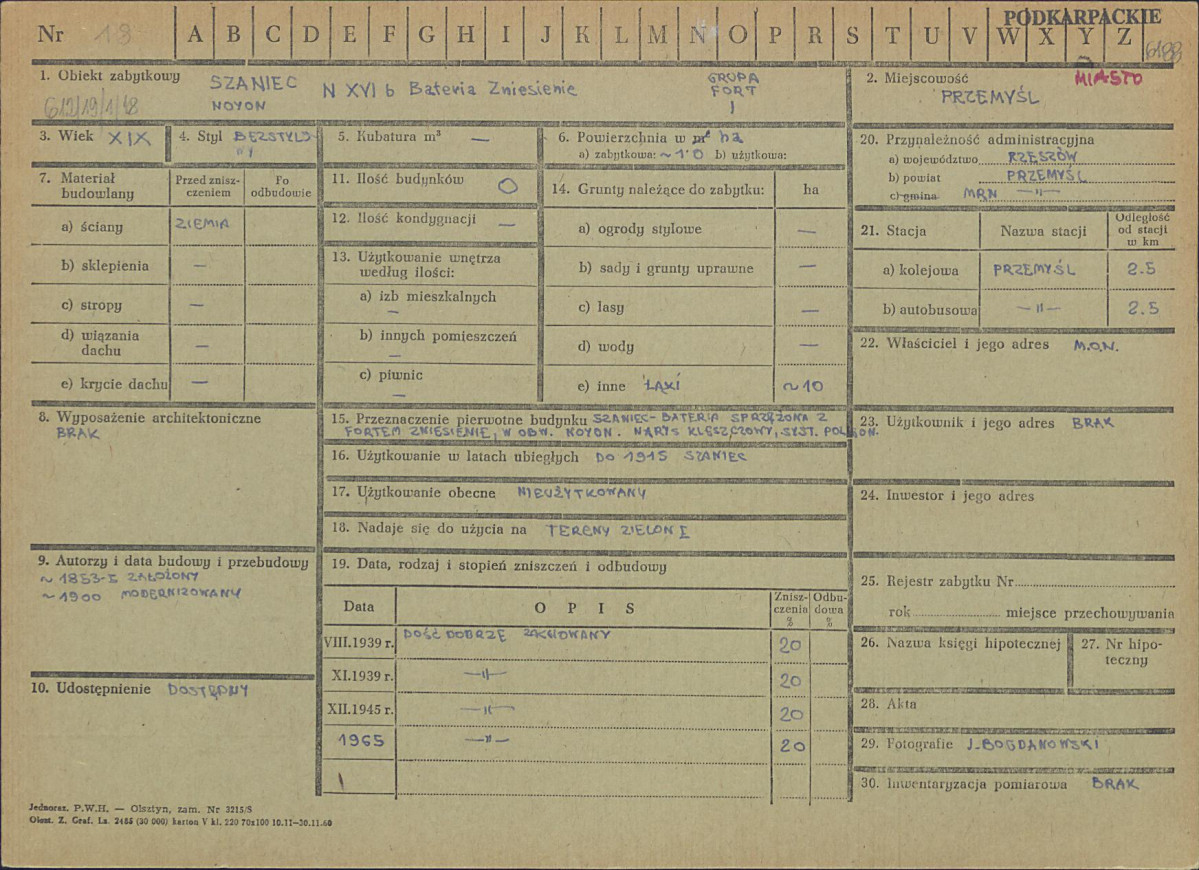 PODKARPACKIE
Nr 13 A B C D E F G H I J K L M N O P R S T U V W X Y Z
6188
1. Obiekt zabytkowy SZANIEC N XVI b Bateria Zniesienie GRUPA
NOYON FORT
I
2. Miejscowość MIASTO
PRZEMYŚL
3. Wiek XIX
4. Styl BEZSTYLO-
WY
5. Kubatura m³ —
6. Powierzchnia w m² ha
a) zabytkowa: ~1'0 b) użytkowa:
20. Przynależność administracyjna
a) województwo RZESZÓW
b) powiat PRZEMYŚL
c) gmina MRN —"—
7. Materiał budowlany
Przed znisz-
czeniem
Po
odbudowie
a) ściany ZIEMIA
b) sklepienia —
c) stropy —
d) wiązania
dachu —
e) krycie dachu —
11. Ilość budynków 0
12. Ilość kondygnacji —
13. Użytkowanie wnętrza
według ilości:
a) izb mieszkalnych
—
b) innych pomieszczeń
—
c) piwnic
—
14. Grunty należące do zabytku: ha
a) ogrody stylowe —
b) sady i grunty uprawne —
c) lasy —
d) wody —
e) inne ŁĄKI ~10
21. Stacja Nazwa stacji
Odległość
od stacji
w km
a) kolejowa PRZEMYŚL 2.5
b) autobusowa —"— 2.5
22. Właściciel i jego adres M.O.N.
8. Wyposażenie architektoniczne
BRAK
15. Przeznaczenie pierwotne budynku SZANIEC-BATERIA SPRZĘŻONA Z
FORTEM ZNIESIENIE, W OBW. NOYON. NARYS KLESZCZOWY, SYST. POLIGON.
16. Użytkowanie w latach ubiegłych DO 1915 SZANIEC
17. Użytkowanie obecne NIEUŻYTKOWANY
18. Nadaje się do użycia na TERENY ZIELONE
23. Użytkownik i jego adres BRAK
24. Inwestor i jego adres
9. Autorzy i data budowy i przebudowy
~ 1853-5 ZAŁOŻONY
~ 1900 MODERNIZOWANY
10. Udostępnienie DOSTĘPNY
19. Data, rodzaj i stopień zniszczeń i odbudowy
Data O P I S
Znisz-
czenia
%
Odbu-
dowa
%
VIII.1939 r. DOŚĆ DOBRZE ZACHOWANY 20
XI.1939 r. —"— 20
XII.1945 r. —"— 20
1965 —"— 20
25. Rejestr zabytku Nr
rok miejsce przechowywania
26. Nazwa księgi hipotecznej
27. Nr hipo-
teczny
28. Akta
29. Fotografie J. BOGDANOWSKI
30. Inwentaryzacja pomiarowa BRAK
Jednoraz. P.W.H. — Olsztyn, zam. Nr 3215/S
Olszt. Z. Graf. Lz. 2485 (30 000) karton V kl. 220 70x100 10.11—30.11.60